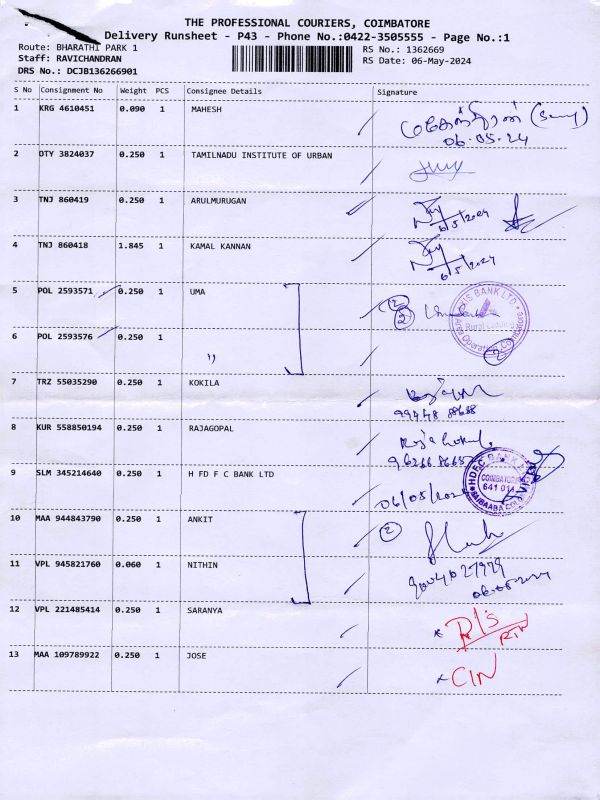 THE PROFESSIONAL COURIERS, COIMBATORE
Delivery Runsheet - P43 - Phone No.:0422-3505555 - Page No.:1
Route: BHARATHI PARK 1 RS No.: 1362669
Staff: RAVICHANDRAN RS Date: 06-May-2024
DRS No.: DCJB136266901
S No Consignment No Weight PCS Consignee Details Signature
1 KRG 4610451 0.090 1 MAHESH
06.05.24
2 OTY 3824037 0.250 1 TAMILNADU INSTITUTE OF URBAN
3 TNJ 860419 0.250 1 ARULMURUGAN
6/5/2024
4 TNJ 860418 1.845 1 KAMAL KANNAN
6/5/2024
5 POL 2593571 0.250 1 UMA
2
6 POL 2593576 0.250 1 "
2
7 TRZ 55035290 0.250 1 KOKILA
99448 88688
8 KUR 558850194 0.250 1 RAJAGOPAL
9 SLM 345214640 0.250 1 H FD F C BANK LTD
HDFC BANK
COIMBATORE
641 011
SAIBAABA COLONY
10 MAA 944843790 0.250 1 ANKIT 2
11 VPL 945821760 0.060 1 NITHIN
12 VPL 221485414 0.250 1 SARANYA
13 MAA 109789922 0.250 1 JOSE CIN